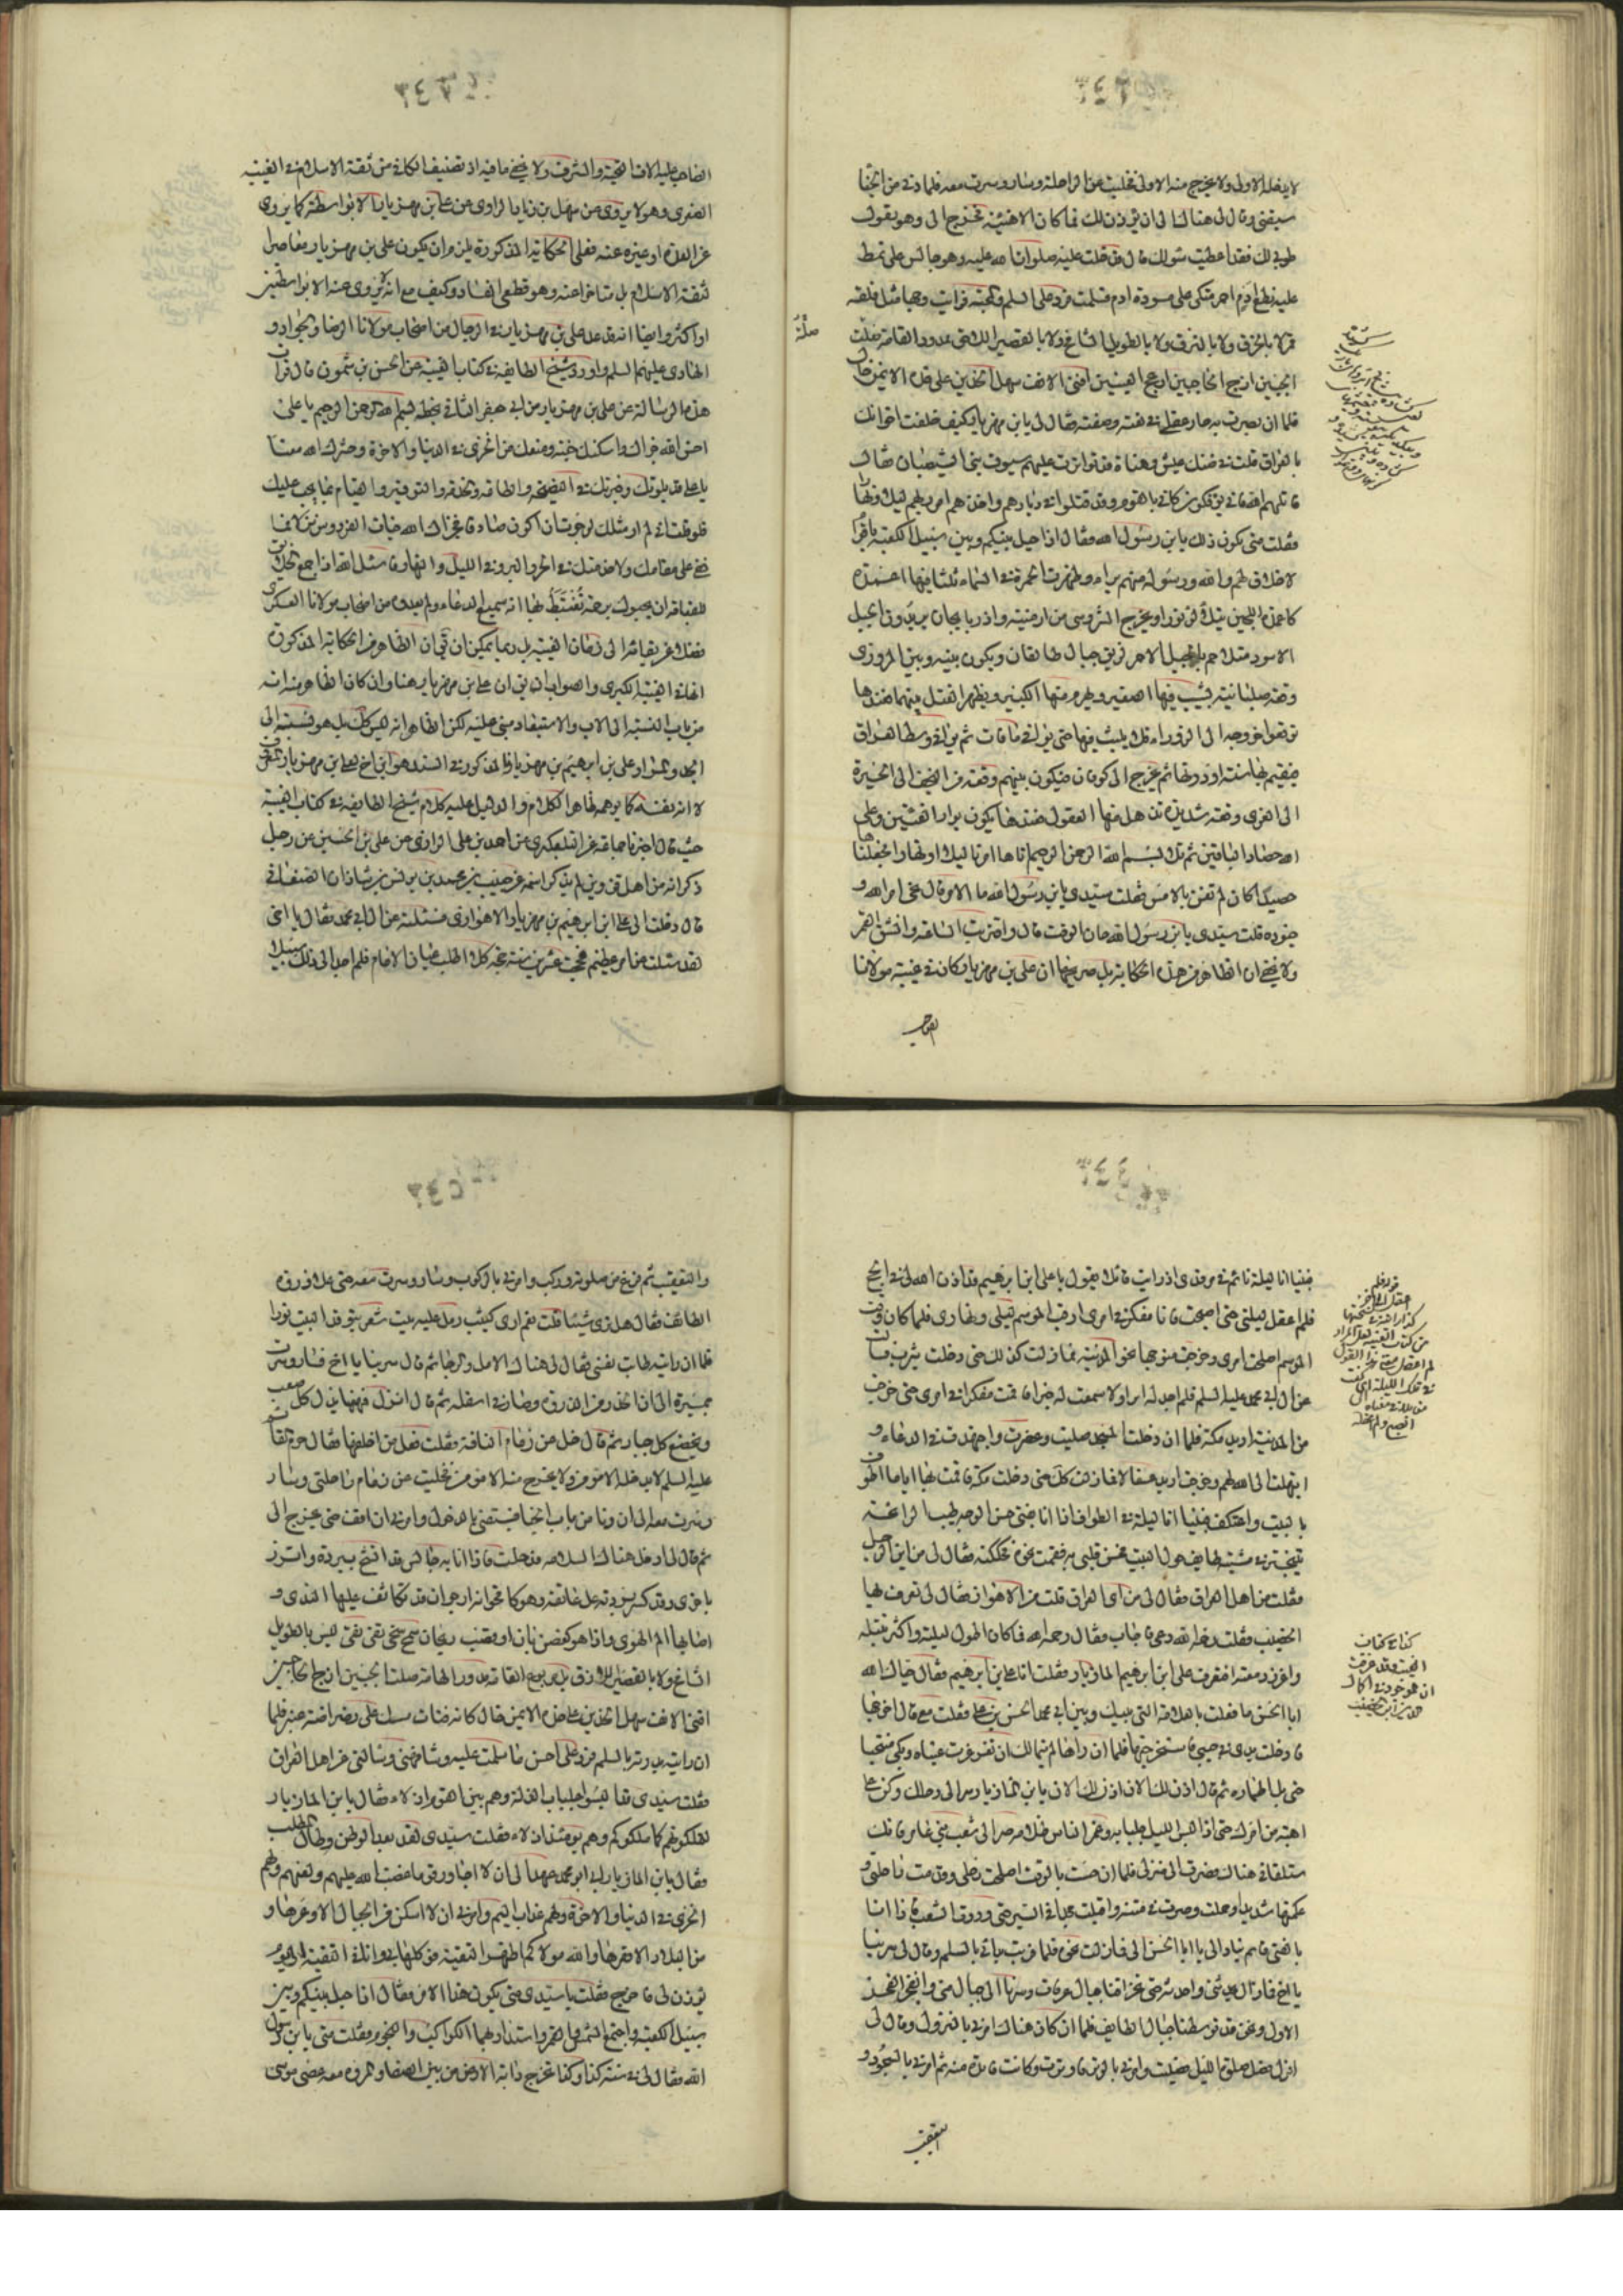 لا يدخله الا ولى ولا يخرج منه الا ولى فخليت عن الراحلة وسار وسرت معه فلما دنى من الخبا
سبقنى وقال لى هناك الى ان يؤذن لك فما كان الا هنيئة فخرج الى وهو يقول
طوبى لك فقد اعطيت سؤلك قال فدخلت عليه صلوات الله عليه وهو جالس على نمط
عليه نطع ادم احمر متكى على مسورة ادم فسلمت فرد على السلم ولمحته فرايت وجها مثل فلقة
قمر لا بالخرق ولا بالنزق ولا بالطويل الشامخ ولا بالقصير اللاصق ممدود القامة صلت
الجبين ازج الحاجبين ادعج العينين اقنى الانف سهل الخدين على خده الايمن خال
فلما ان بصرت به حار عقلى فى نعته وصفته فقال لى يابن مهزيار كيف خلفت اخوانك
بالعراق قلت فى ضنك عيش وهناة قد تواترت عليهم سيوف بنى الشيصبان فقال
قاتلهم الله انى يؤفكون كانى بالقوم وقد قتلوا فى ديارهم واخذهم امر ربهم ليلا ونهارا
فقلت متى يكون ذلك يابن رسول الله فقال اذا حيل بينكم وبين سبيل الكعبة باقوام
لا خلاق لهم والله ورسوله منهم براء وظهرت الحمرة فى السماء ثلثا فيها اعمدة
كاعمدة اللجين تتلألأ نورا ويخرج الشروسى من ارمنية واذربايجان يريد وراء الجبل
الاسود متلاحم بالجبل الاحمر لزيق جبال طالقان ويكون بينه وبين المروزى
وقعة صلبانية يشيب فيها الصغير ويهرم منها الكبير ويظهر القتل بينهما فعندها
توقعوا خروجه الى الزوراء فلا يلبث فيها حتى يوافى ماهات ثم يوافى واسط العراق
فيقيم بها سنة او دونها ثم يخرج الى كوفان فيكون بينهم وقعة من النجف الى الحيرة
الى الغرى وقعة شديدة تذهل منها العقول فعندها يكون بوار الفئتين وعلى
الله حصاد الباقين ثم تلا بسم الله الرحمن الرحيم اتاها امرنا ليلا او نهارا فجعلناها
حصيدا كان لم تغن بالامس فقلت سيدى يابن رسول الله ما الامر قال نحن امر الله و
جنوده قلت سيدى يابن رسول الله حان الوقت قال واقتربت الساعة وانشق القمر
ولا يخفى ان الظاهر من هذه الحكاية بل صريحها ان على بن مهزيار كان فى غيبة مولانا
الصاحب
الصاحب عليه الاف التحية والشرف ولا يخفى ما فيه اذ تصنيف الكافى من ثقة الاسلام فى الغيبة
الصغرى وهو لا يروى عن سهل بن زياد الراوى عن على بن مهزيار الا بواسطة كما يروى
عن العدة او غيره عنه فعلى الحكاية المذكورة يلزم ان يكون على بن مهزيار معاصرا
لثقة الاسلام بل متاخرا عنه وهو قطعى الفساد وكيف مع انه لا يروى عنه الا بواسطتين
او اكثر وايضا انه قد عد على بن مهزيار فى الرجال من اصحاب مولانا الرضا والجواد و
الهادى عليهم السلم واورد شيخ الطايفة فى كتاب الغيبة عن الحسن بن شمون قال قرات
هذه الرسالة عن على بن مهزيار من ابى جعفر الثانى بخطه بسم الله الرحمن الرحيم يا على
احسن الله جزاك واسكنك جنته ومنعك من الخزى فى الدنيا والاخرة وحشرك الله معنا
يا على قد بلوتك وخبرتك فى النصيحة والطاعة والخدمة والتوقير والقيام بما يجب عليك
فلو قلت انى لم ار مثلك لرجوت ان اكون صادقا فجزاك الله جنات الفردوس نزلا فما
خفى على مقامك ولا خدمتك فى الحر والبرد فى الليل والنهار فاسئل الله اذا جمع الخلايق
للقيامة ان يحبوك برحمة تغتبط بها انه سميع الدعاء ولم يعدوه من اصحاب مولانا العسكرى
فضلا عن بقائه الى زمان الغيبة بل ربما يمكن ان قيل ان الظاهر من الحكاية المذكورة
انها فى الغيبة الكبرى والصواب ان يق ان على بن مهزيار هنا وان كان الظاهر منه انه
من باب النسبة الى الاب والاستبعاد مبنى عليه لكن الظاهر انه ليس كك بل هو نسبة الى
الجد والمراد على بن ابرهيم بن مهزيار فالمذكور فى السند هو ابن اخ لعلى بن مهزيار
لا انه نفسه كما يوهمه ظاهر الكلام والدليل عليه كلام شيخ الطايفة فى كتاب الغيبة
حيث قال اخبرنا جماعة عن التلعكبرى عن احمد بن على الرازى عن على بن الحسين عن رجل
ذكر انه من اهل قزوين لم يذكر اسمه عن حبيب بن محمد بن يونس بن شاذان الصنعانى
قال دخلت الى على بن ابرهيم بن مهزيار الاهوازى فسئلته عن ال ابى محمد فقال يا اخى
لقد سئلت عن امر عظيم حججت عشرين سنة حجة كلا اطلب عيان الامام فلم اجد الى ذلك سبيلا
فبينا انا ليلة نائم فى مرقدى اذ رايت قائلا يقول يا على ابن ابرهيم قد اذن الله لى فى الحج
فلم اعقل ليلتى حتى اصبحت فانا مفكر فى امرى ارقب الموسم ليلى ونهارى فلما كان وقت
الموسم اصلحت امرى وخرجت متوجها نحو المدينة فما زلت كذلك حتى دخلت يثرب فسالت
عن ال ابى محمد عليه السلم فلم اجد له اثرا ولا سمعت له خبرا فاقمت مفكرا فى امرى حتى خرجت
من المدينة اريد مكة فلما ان دخلت المسجد صليت وعفرت واجتهدت فى الدعاء و
ابتهلت الى الله لهم وخرجت اريد عسفان فما زلت كك حتى دخلت مكة فاقمت بها اياما اطوف
بالبيت واعتكف فبينا انا ليلة فى الطواف اذا انا بفتى حسن الوجه طيب الرائحة
يتبختر فى مشيته طايف حول البيت فحس قلبى به فقمت نحوه فحككته فقال لى من اين الرجل
فقلت من اهل العراق فقال لى من اى العراق قلت من الاهواز فقال لى تعرف بها
الخصيب فقلت رحمه الله دعى فاجاب فقال رحمه الله فما كان اطول ليلته واكثر تبتله
واغزر دمعته افتعرف على ابن ابرهيم المازيار فقلت انا على بن ابرهيم فقال حياك الله
ابا الحسن ما فعلت بالعلامة التى بينك وبين ابى محمد الحسن بن على فقلت معى قال اخرجها
فادخلت يدى فى جيبى فاستخرجتها فلما ان راها لم يتمالك ان تغرغرت عيناه وبكى منتحبا
حتى بل اطماره ثم قال اذن لك الان اذن لك الان يابن المازيار صر الى رحلك وكن على
اهبة من امرك حتى اذا لبس الليل جلبابه وغمر الناس ظلامه صر الى شعب بنى عامر فانك
ستلقانى هناك فصرت الى منزلى فلما ان حست بالوقت اصلحت رحلى وقدمت راحلتى و
عكمتها شديدا وحملت وصرت فى متنه واقبلت مجدا فى السير حتى وردت الشعب فاذا انا
بالفتى قائم ينادى الى يا ابا الحسن الى فما زلت نحوه فلما قربت بدانى بالسلم وقال لى سر بنا
يا اخ فما زال يحدثنى واحدثه حتى تخرقنا جبال عرفات وسرنا الى جبال منى وانفجر الفجر
الاول ونحن قد توسطنا جبال الطايف فلما ان كان هناك امرنى بالنزول وقال لى
انزل فصل صلوة الليل فصليت وامرنى بالوتر فاوترت وكانت فايدة منه ثم امرنى بالسجود و
التعقيب
والتعقيب ثم فرغ من صلوته وركب وامرنى بالركوب وسار وسرت معه حتى علا ذروة
الطائف فقال هل ترى شيئا قلت نعم ارى كثيب رمل عليه بيت شعر يتوقد البيت نورا
فلما ان رايته طابت نفسى فقال لى هناك الامل والرجا ثم قال سر بنا يا اخ فسار وسرت
بمسيره الى ان انحدر من الذروة وصار فى اسفله ثم قال انزل فههنا يذل كل صعب
ويخضع كل جبار ثم قال خل عن زمام الناقة فقلت فعلى من اخلفها فقال حرم القائم
عليه السلم لا يدخله الا مؤمن ولا يخرج منه الا مؤمن فخليت عن زمام راحلتى وسار
وسرت معه الى ان دنا من باب الخبا فسبقنى بالدخول وامرنى ان اقف حتى يخرج الى
ثم قال لى ادخل هناك السلامة فدخلت فاذا انا به جالس قد اتشح ببردة واتزر
باخرى وقد كسر بردته على عاتقه وهو كاقحوانة ارجوان قد تكاثف عليها الندى و
اصابها الم الهوى واذا هو كغصن بان او قضيب ريحان سمح سخى تقى نقى ليس بالطويل
الشامخ ولا بالقصير اللازق بل مربوع القامة مدور الهامة صلت الجبين ازج الحاجبين
اقنى الانف سهل الخدين على خده الايمن خال كانه فتات مسك على رضراضة عنبر فلما
ان رايته بدرته بالسلم فرد على احسن ما سلمت عليه وشافهنى وسالنى عن اهل العراق
فقلت سيدى قد البسوا جلباب الذلة وهم بين القوم اذلاء فقال يابن المازيار
لتملكونهم كما ملكوكم وهم يومئذ اذلاء فقلت سيدى لقد بعد الوطن وطال المطلب
فقال يابن المازيار ابى ابو محمد عهد الى ان لا اجاور قوما غضب الله عليهم ولعنهم ولهم
الخزى فى الدنيا والاخرة ولهم عذاب اليم وامرنى ان لا اسكن من الجبال الا وعرها و
من البلاد الا قفرها والله مولاكم اظهر التقية فوكلها بى فانا فى التقية الى يوم
يؤذن لى فاخرج فقلت يا سيدى متى يكون هذا الامر فقال اذا حيل بينكم وبين
سبيل الكعبة واجتمع الشمس والقمر واستدار بهما الكواكب والنجوم فقلت متى يابن رسول
الله فقال لى فى سنة كذا وكذا تخرج دابة الارض من بين الصفا والمروة معه عصى موسى